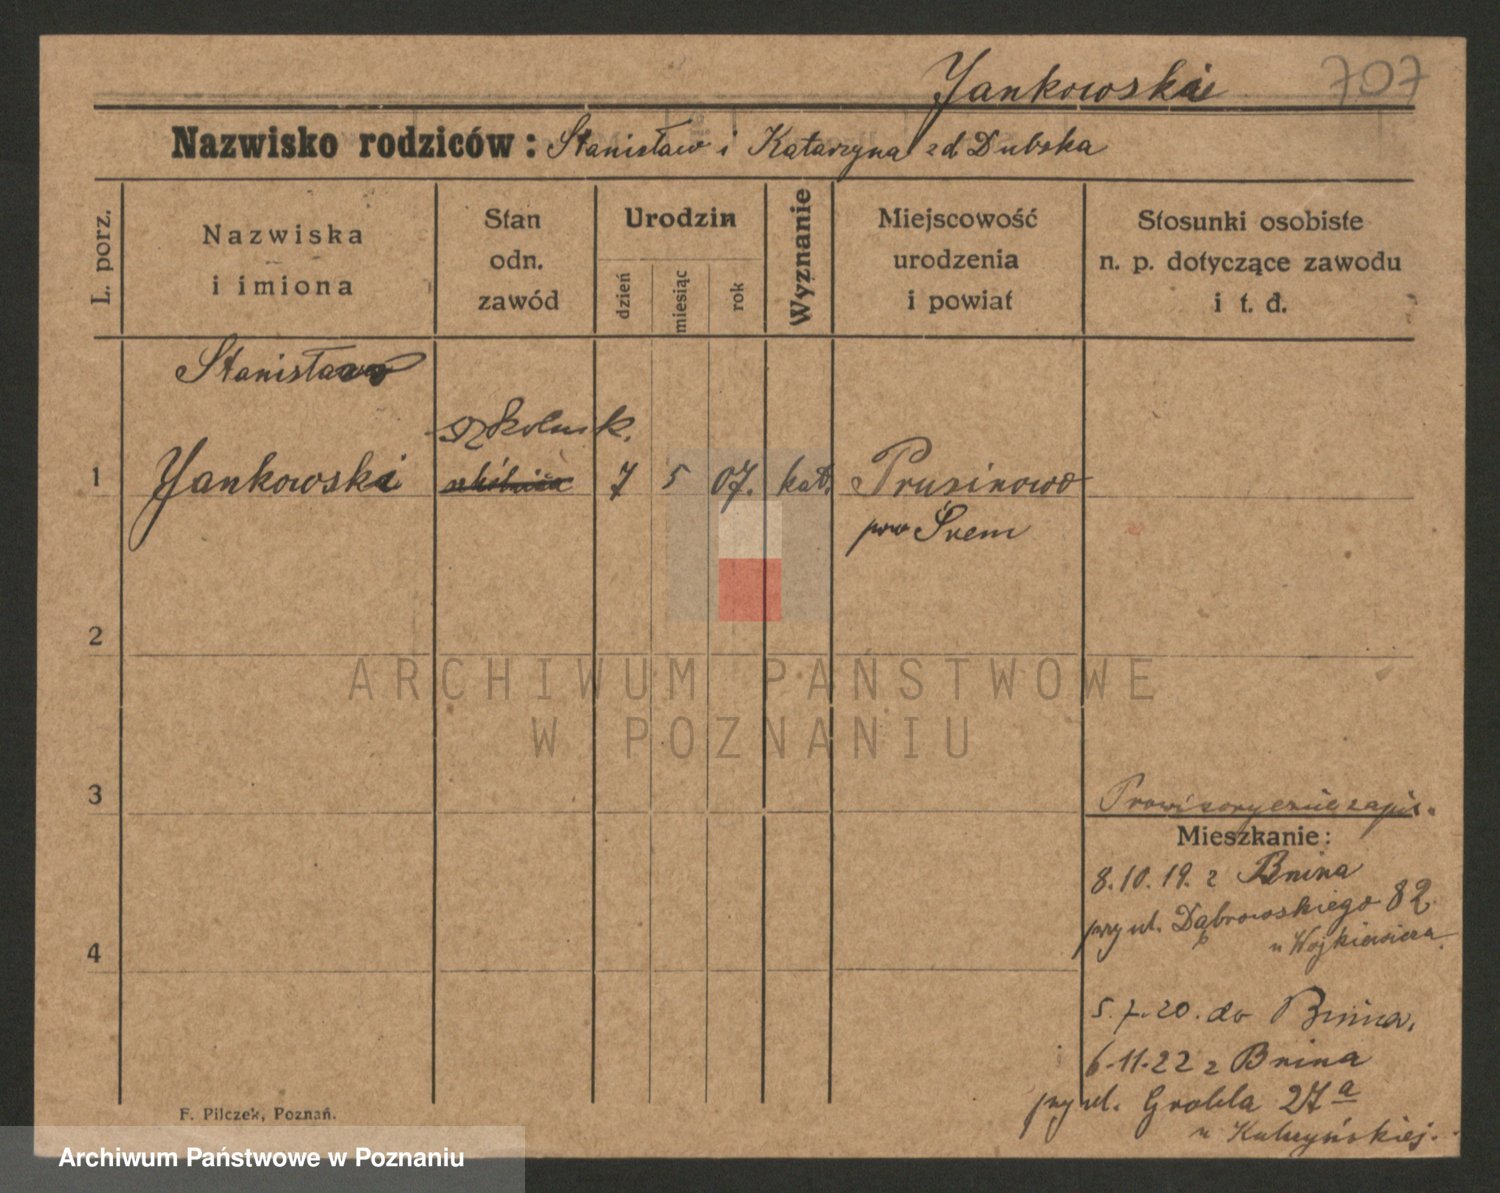 Jankowski
707
Nazwisko rodziców: Stanisław i Katarzyna zd Dubska
L. porz.
Nazwiska
i imiona
Stan
odn.
zawód
Urodzin
dzień
miesiąc
rok
Wyznanie
Miejscowość
urodzenia
i powiat
Stosunki osobiste
n. p. dotyczące zawodu
i t. d.
Stanisław
szkolnik.
1 Jankowski 7 5 07. kat. Prusinowo
pow Śrem
2
ARCHIWUM PAŃSTWOWE
W POZNANIU
3
Prowizorycznie zapis.
Mieszkanie:
8.10.19. z Bnina
przy ul. Dąbrowskiego 82
u Wojkiewicza.
4
5.7.20. do Bnina.
6.11.22 z Bnina
przy ul. Grobla 27a
u
F. Pilczek, Poznań.
Archiwum Państwowe w Poznaniu